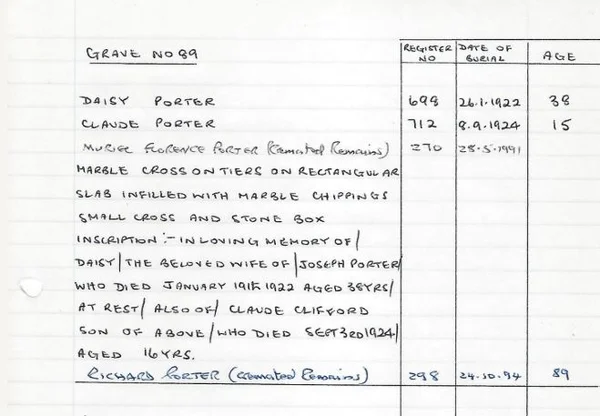 GRAVE NO 89 REGISTER NO DATE OF BURIAL AGE
DAISY PORTER 698 26.1.1922 38
CLAUDE PORTER 712 8.9.1924 15
MURIEL FLORENCE PORTER (Cremated Remains) 270 28.5.1991
MARBLE CROSS ON TIERS ON RECTANGULAR
SLAB INFILLED WITH MARBLE CHIPPINGS
SMALL CROSS AND STONE BOX
INSCRIPTION :- IN LOVING MEMORY OF/
DAISY/THE BELOVED WIFE OF/JOSEPH PORTER/
WHO DIED JANUARY 19th 1922 AGED 38YRS/
AT REST/ ALSO OF/ CLAUDE CLIFFORD
SON OF ABOVE/WHO DIED SEPT 3RD 1924/
AGED 16 YRS.
RICHARD PORTER (Cremated Remains) 298 24.10.94 89